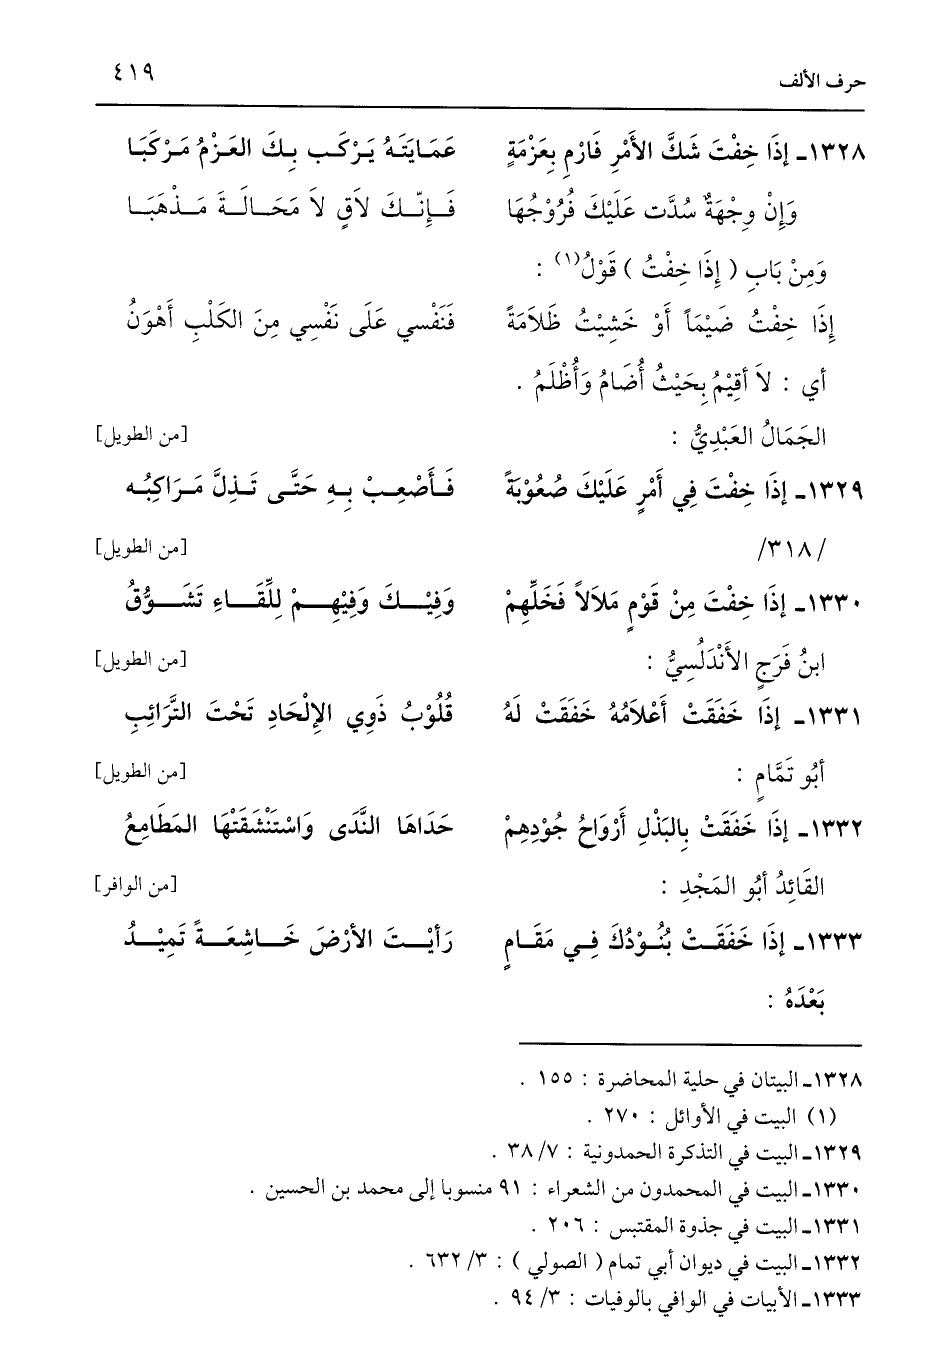 حرف الألف ٤١٩
١٣٢٨ـ إِذَا خِفْتَ شَكَّ الأَمْرِ فَارْمِ بِعَزْمَةٍ عَمَايَتَهُ يَرْكَب بِكَ العَزْمُ مَرْكَبَا
وَإِنْ وِجْهَةٌ سُدَّت عَلَيْكَ فُرُوْجُهَا فَإِنّكَ لاَقٍ لاَ مَحَالَةَ مَذْهَبَا
وَمِنْ بَابِ ( إِذَا خِفْتُ ) قَوْلُ(١) :
إِذَا خِفْتُ ضَيْمَاً أَوْ خَشِيْتُ ظَلاَمَةً فَنَفْسي عَلَى نَفْسِي مِنَ الكَلْبِ أَهْوَنُ
أي : لاَ أقِيْمُ بِحَيْثُ أُضَامُ وَأُظْلَمُ .
الجَمَالُ العَبْدِيُّ : [من الطويل]
١٣٢٩ـ إِذَا خِفْتَ فِي أَمْرٍ عَلَيْكَ صُعُوْبَةً فَأَصْعِبْ بِهِ حَتَّى تَذِلَّ مَرَاكِبُه
/٣١٨/ [من الطويل]
١٣٣٠ـ إِذَا خِفْتَ مِنْ قَوْمٍ مَلاَلاً فَخَلِّهِمْ وَفِيْكَ وَفِيْهِمْ لِلِّقَاءِ تَشَوُّقُ
ابنُ فَرَجٍ الأَنْدَلُسِيُّ : [من الطويل]
١٣٣١ـ إِذَا خَفَقَتْ أَعْلاَمُهُ خَفَقَتْ لَهُ قُلُوْبُ ذَوِي الإِلْحَادِ تَحْتَ التَّرَائِبِ
أَبُو تَمَّامٍ : [من الطويل]
١٣٣٢ـ إِذَا خَفَقَتْ بِالبَذْلِ أَرْوَاحُ جُوْدِهِمْ حَدَاهَا النَّدَى وَاسْتَنْشَقَتْهَا المَطَامِعُ
القَائِدُ أَبُو المَجْدِ : [من الوافر]
١٣٣٣ـ إِذَا خَفَقَتْ بُنُوْدُكَ فِي مَقَامٍ رَأَيْتَ الأَرْضَ خَاشِعَةً تَمِيْدُ
بَعْدَهُ :
١٣٢٨ـ البيتان في حلية المحاضرة : ١٥٥ .
(١) البيت في الأوائل : ٢٧٠ .
١٣٢٩ـ البيت في التذكرة الحمدونية : ٧/ ٣٨ .
١٣٣٠ـ البيت في المحمدون من الشعراء : ٩١ منسوبا إلى محمد بن الحسين .
١٣٣١ـ البيت في جذوة المقتبس : ٢٠٦ .
١٣٣٢ـ البيت في ديوان أبي تمام ( الصولي ) : ٣/ ٦٣٢ .
١٣٣٣ـ الأبيات في الوافي بالوفيات : ٣/ ٩٤ .